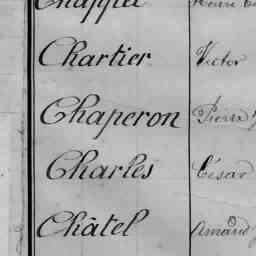 Chappel
Chartier Victor
Chaperon Pierre
Charles César
Châtel Amand